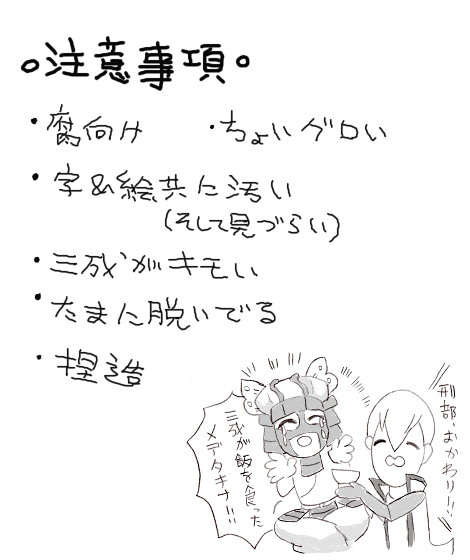 。注意事項。
・腐向け ・ちょいグロい
・字&絵共に汚い
(そして見づらい)
・三成がキモい
・たまに脱いでる
・捏造
刑部、おかわり!!
三成が飯を食った
メデタキナ!!!